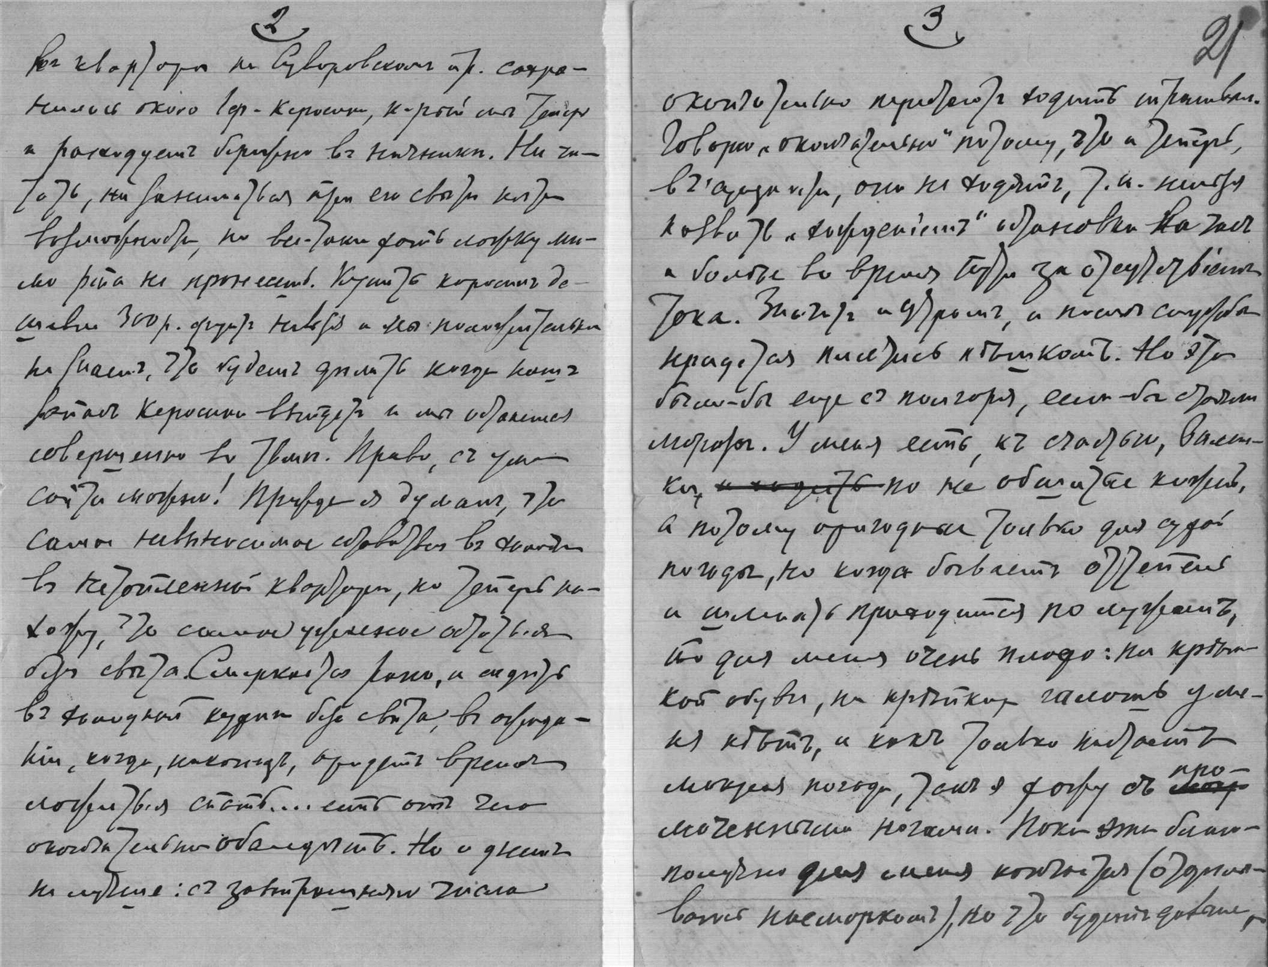 2
въ квартирѣ на Суворовскомъ пр. сохра-
нилось около 1 ф. керосина, к-рый мы теперь
и расходуемъ бережно въ ночники. Ни чи-
тать, ни заниматься при его свѣтѣ нѣтъ
возможности, но все-таки хоть ложку ми-
мо рта не пронесешь. Купить керосинъ де-
шевле 300 р. фунтъ нельзя и мы положительно
не знаемъ, что будемъ дѣлать когда нашъ
запасъ керосина выйдетъ и мы останемся
совершенно во тьмѣ. Право, съ ума
сойти можно! Прежде я думалъ, что
самое невыносимое оставаться въ холодѣ
въ нетопленной квартирѣ, но теперь на-
хожу, что самое ужасное остаться
безъ свѣта. Смеркается рано, и сидѣть
въ холодной кухнѣ безъ свѣта, въ ожида-
нiи, когда, наконецъ, придетъ время
ложиться спать... есть отъ чего
окончательно обалдѣть. Но и днемъ
не лучше: съ завтрашняго числа
3
21
окончательно перестаютъ ходить трамваи.
Говорю „окончательно" потому, что и теперь,
въ сущности, они не ходятъ, т. к. нельзя
назвать „хожденiемъ" остановки на часъ
и болѣе во время пути за отсутствiемъ
тока. Значитъ и утромъ, и послѣ службы
придется плестись пѣшкомъ. Но это
было-бы еще съ полгоря, если-бы стояли
морозы. У меня есть, къ счастью, вален-
ки, но не обшитые кожей,
а потому пригодные только для сухой
погоды, но когда бываетъ оттепель
и шлепать приходится по лужамъ,
то для меня очень плохо: ни крѣп-
кой обуви, ни крѣпкихъ галошъ у ме-
ня нѣтъ, и какъ только настаетъ
мокрая погода, такъ я хожу съ про-
моченными ногами. Пока это благо-
получно для меня кончается (отдѣлы-
ваюсь насморкомъ), но что будетъ дальше,